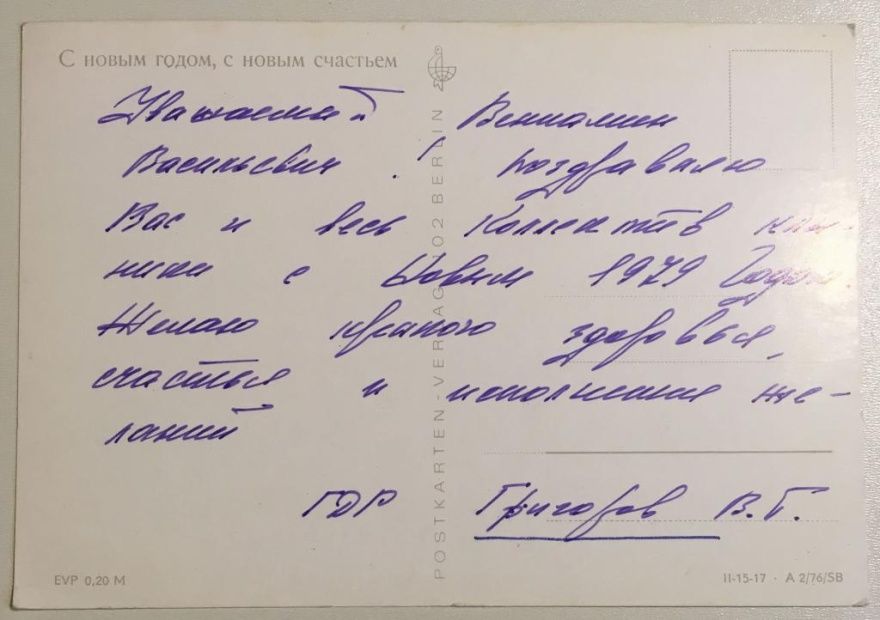 С новым годом, с новым счастьем
Уважаемый Вениамин
Васильевич! Поздравляю
Вас и весь Коллектив кли-
ники с Новым 1979 Годом.
Желаю крепкого здоровья,
счастья и исполнения же-
ланий
ГДР Григоров В.Г.
POSTKARTEN-VERLAG 102 BERLIN
EVP 0,20 M
II-15-17 · A 2/76/SB